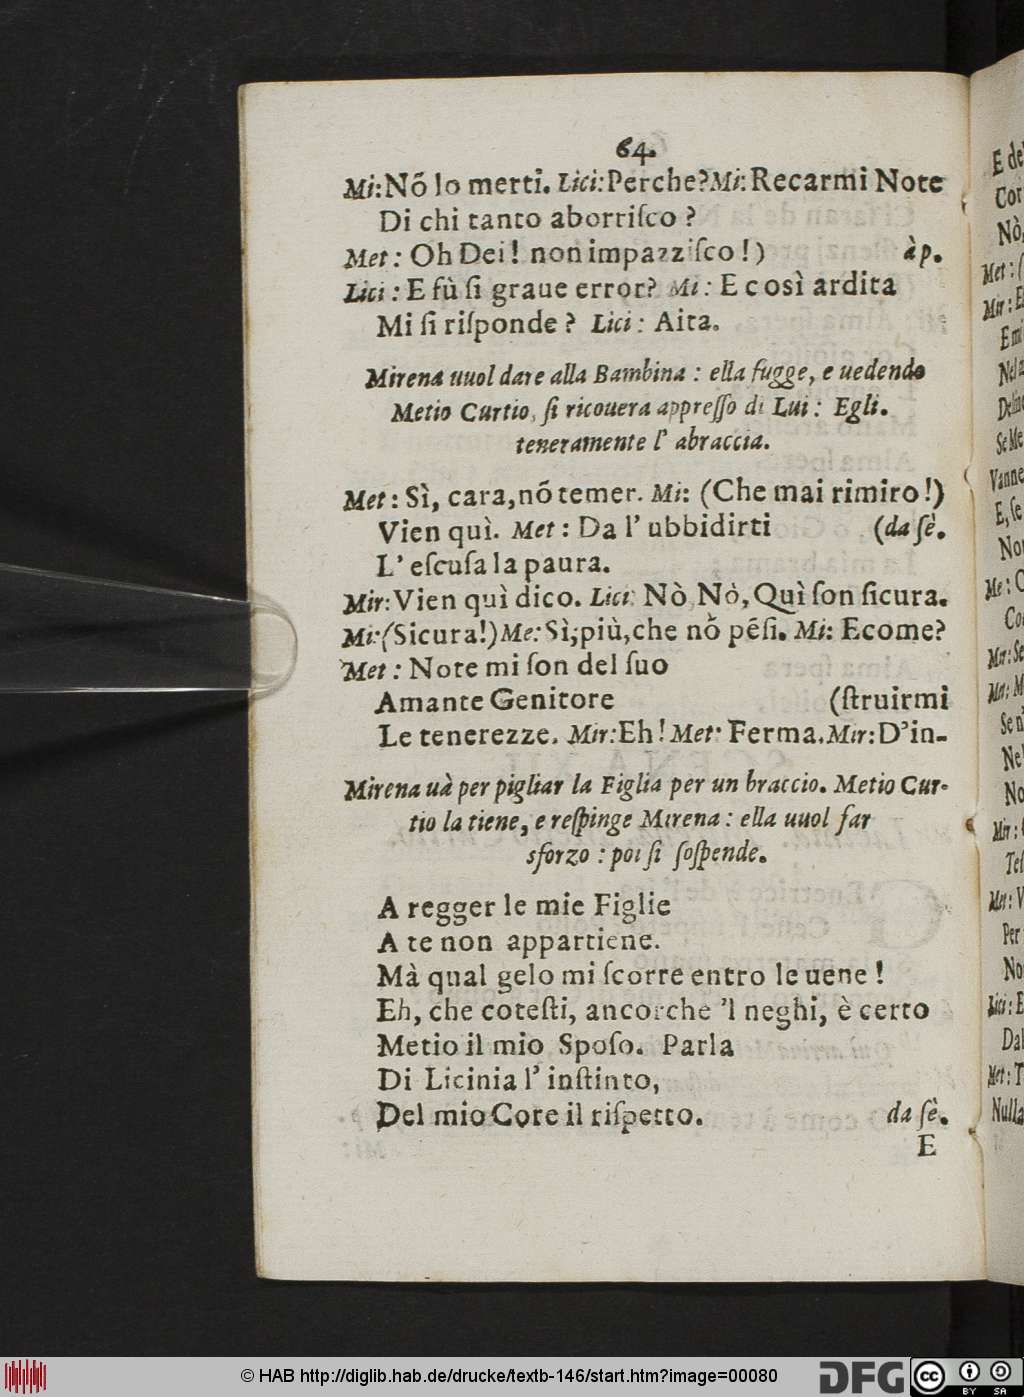 64.
Mi: Nõ lo merti. Lici: Perche? Mi: Recarmi Note
Di chi tanto aborriſco?
Met: Oh Dei! non impazziſco!) à p.
Lici: E fù ſi graue error? Mi: E così ardita
Mi ſi riſponde? Lici: Aita.
Mirena uuol dare alla Bambina: ella fugge, e uedendo
Metio Curtio, ſi ricouera appreſſo di Lui: Egli.
teneramente l' abraccia.
Met: Sì, cara, nõ temer. Mi: (Che mai rimiro!)
Vien quì. Met: Da l' ubbidirti (da ſè.
L' eſcuſa la paura.
Mir: Vien quì dico. Lici: Nò Nò, Quì ſon ſicura.
Mi: (Sicura!) Me: Sì; più, che nõ pẽſi. Mi: E come?
Met: Note mi ſon del ſuo
Amante Genitore (ſtruirmi
Le tenerezze. Mir: Eh! Met: Ferma. Mir: D'in-
Mirena uà per pigliar la Figlia per un braccio. Metio Cur-
tio la tiene, e reſpinge Mirena: ella uuol far
sforzo: poi ſi ſoſpende.
A regger le mie Figlie
A te non appartiene.
Mà qual gelo mi ſcorre entro le uene!
Eh, che coteſti, ancorche 'l neghi, è certo
Metio il mio Spoſo. Parla
Di Licinia l' inſtinto,
Del mio Core il riſpetto. da ſè.
E
E de
Cor
Nò,
Met: (
Mir: E
E mi
Nel
Se Me
Vanne
E, ſe
Non
Me: C
Co
Mir: Se
Met: M
Se n'
Ne
No
Mir:
Teſ
Met: V
Per
No
Lici: E
Dal
Met: T
Nulla
© HAB http://diglib.hab.de/drucke/textb-146/start.htm?image=00080
DFG
cc
BY SA